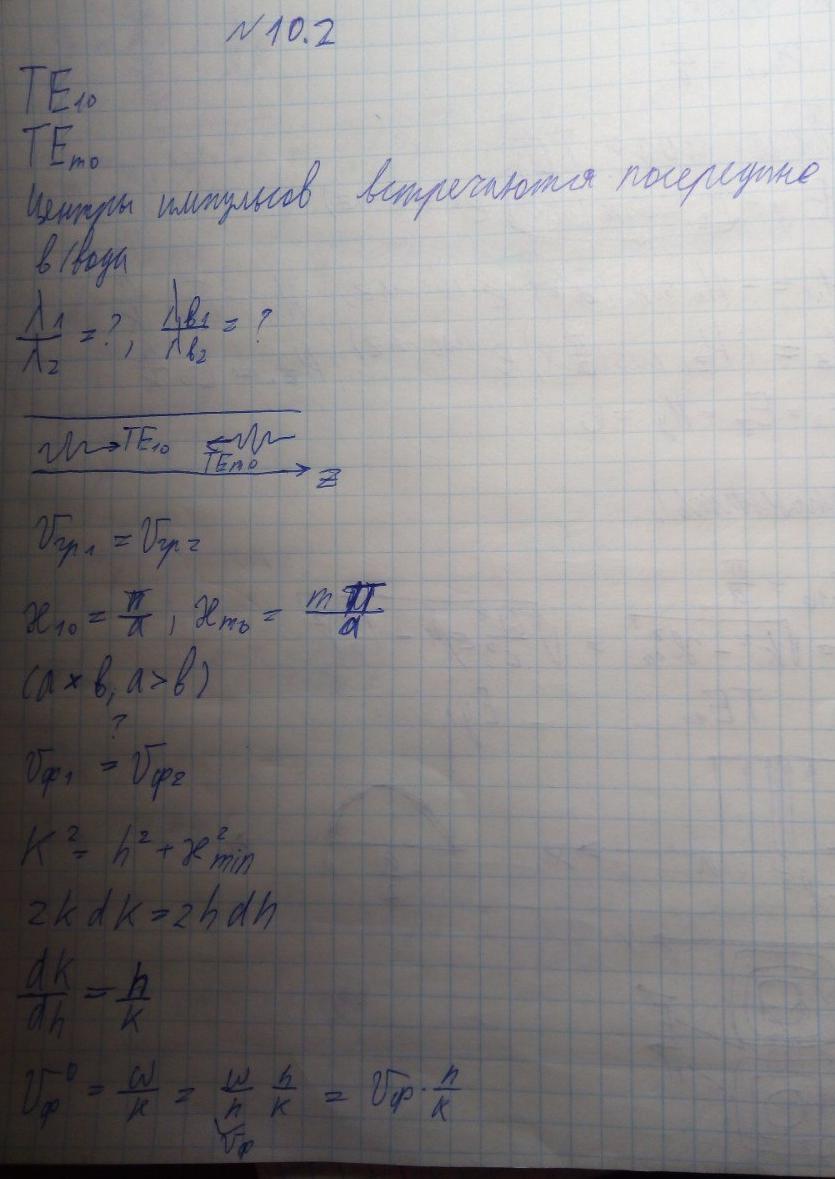 №10.2
TE₁₀
TEₘ₀
Центры импульсов встречаются посередине
в/вода
λ₁/λ₂ = ?, λв₁/λв₂ = ?
TE₁₀ TEₘ₀ z
vгр₁ = vгр₂
ϰ₁₀ = π/a, ϰₘ₀ = mπ/a
(a × b, a > b)
?
vф₁ = vф₂
k² = h² + ϰ²min
2k dk = 2h dh
dk/dh = h/k
vф⁰ = ω/k = ω/h h/k = vф · h/k
vф